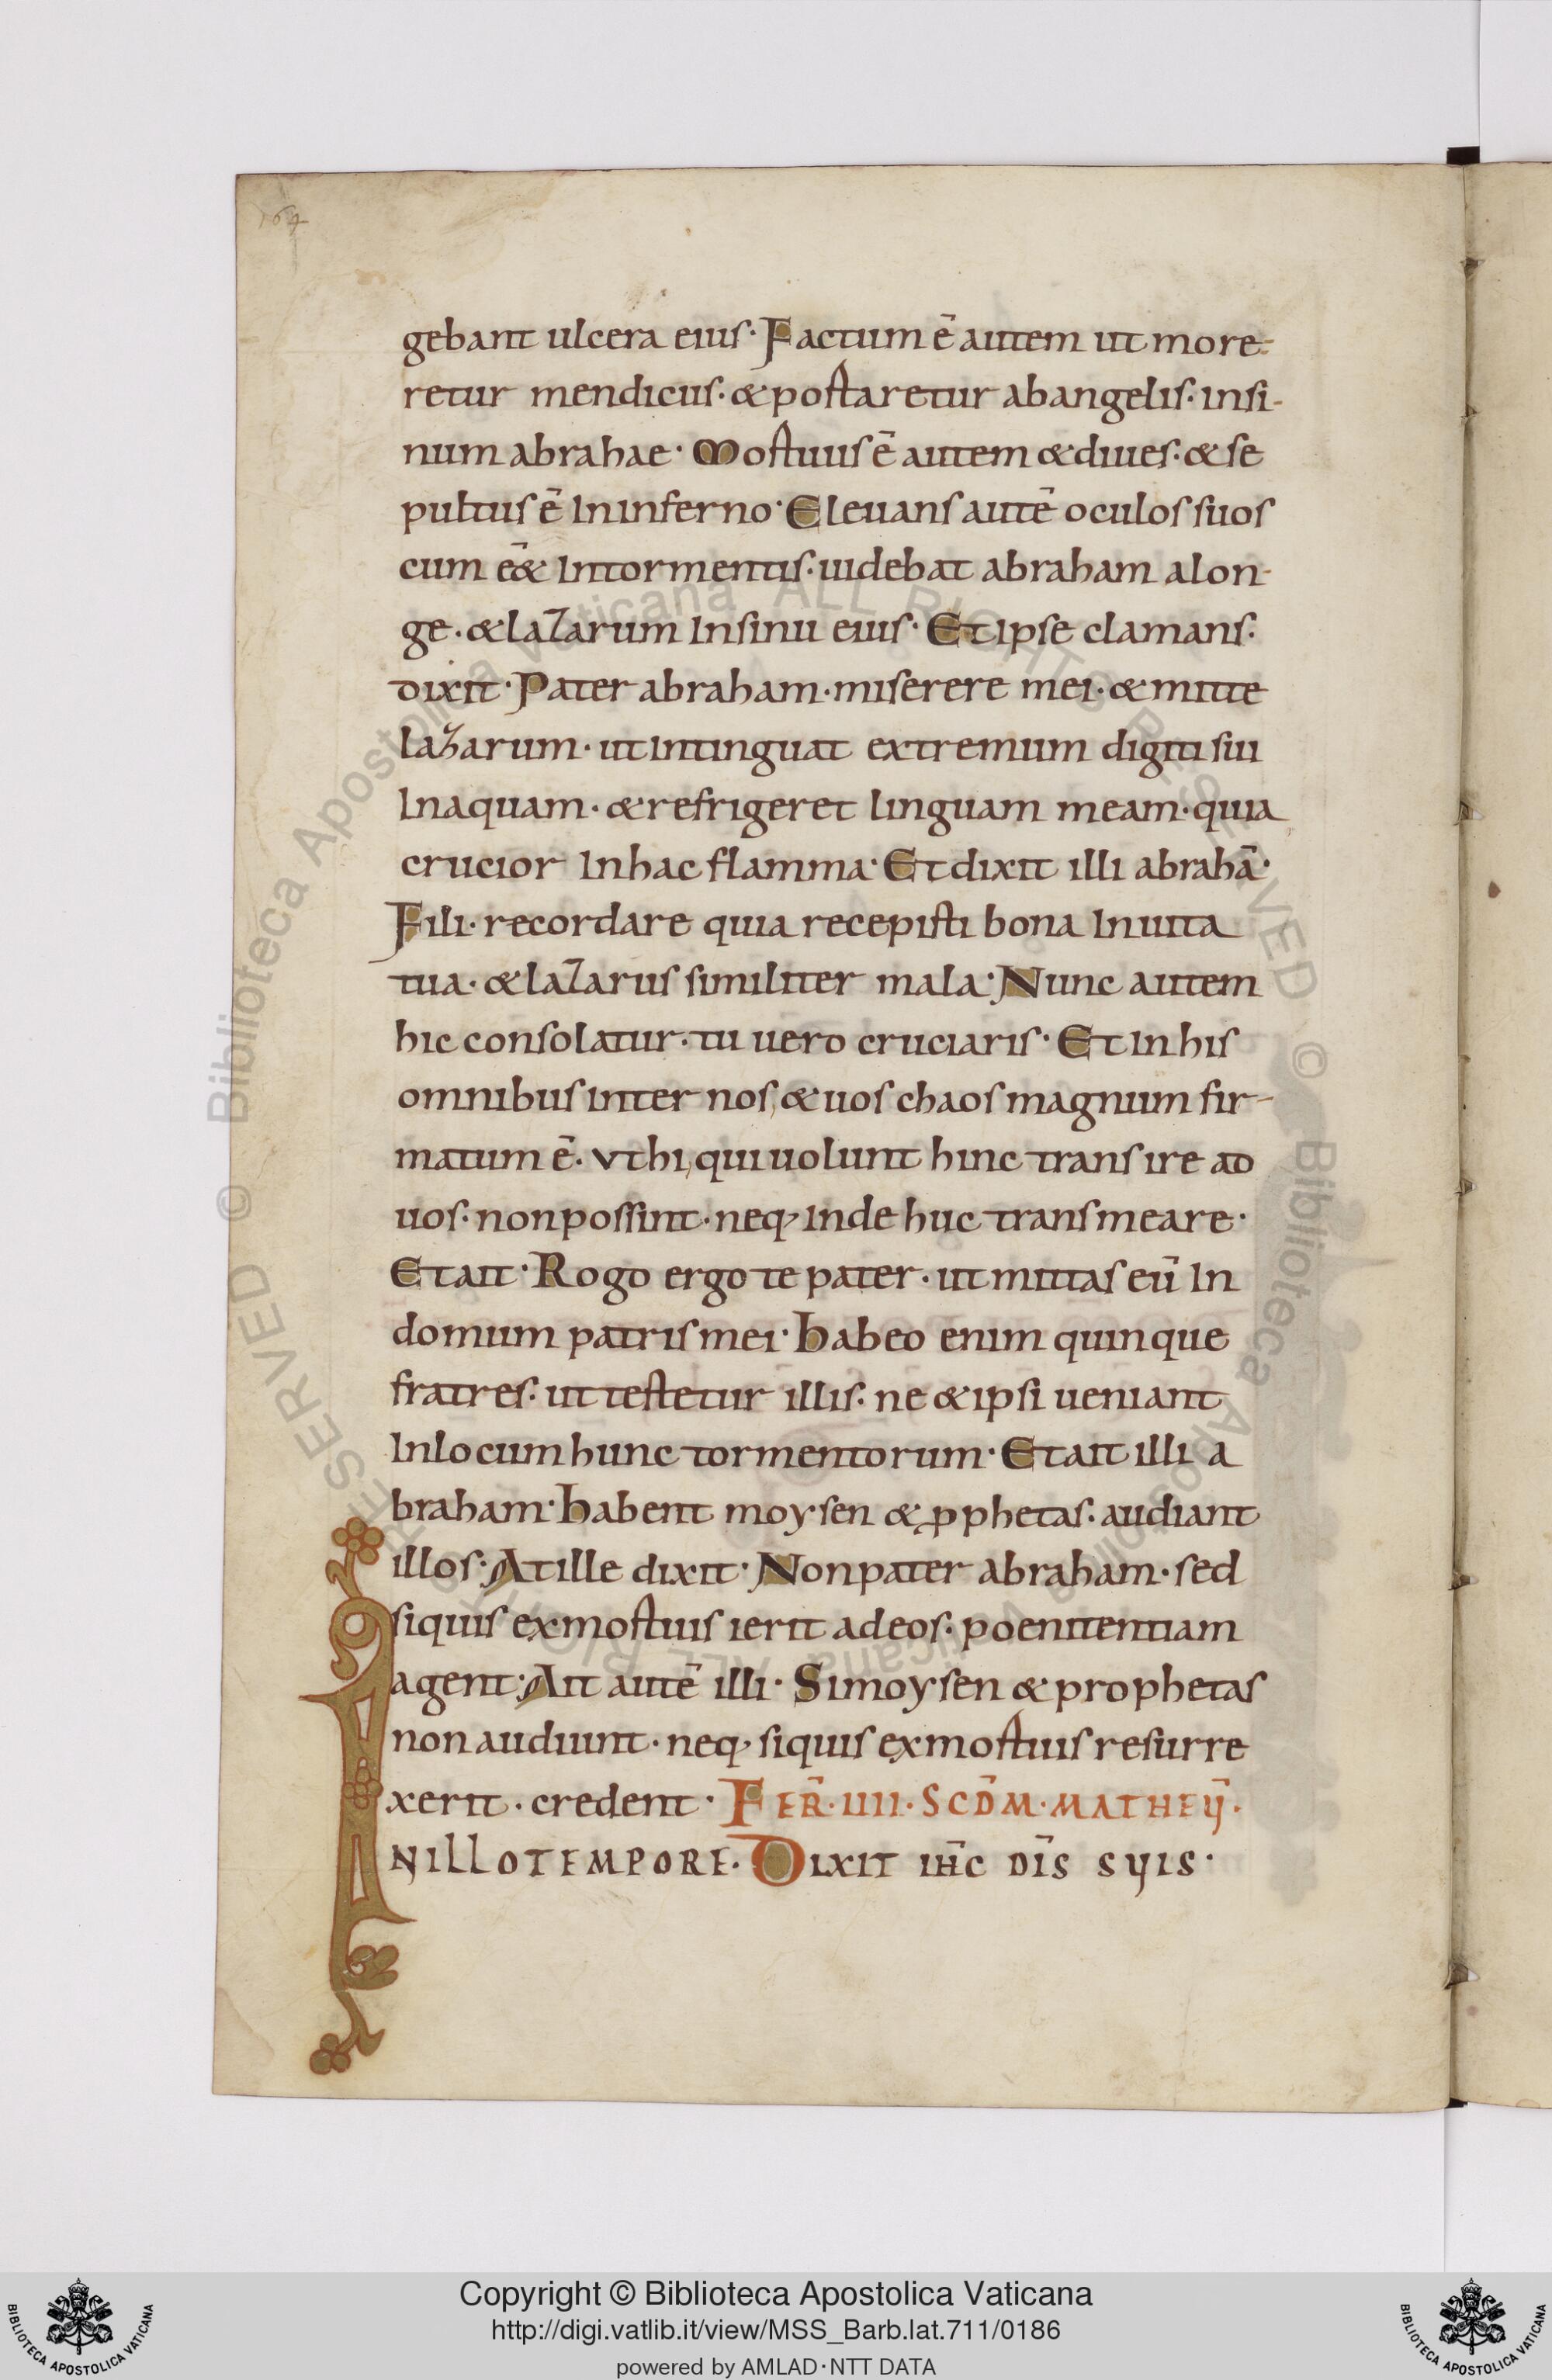 164
gebant ulcera eius· Factum ē autem ut more-
retur mendicus· & portaretur ab angelis· insi-
num abrahae· Mortuus ē autem & diues· & se
pultus ē In inferno· Eleuans autē oculos suos
cum eē& In tormentis· uidebat abraham alon-
ge· & lazarum In sinu eius· Et ipse clamans·
dixit· Pater abraham· miserere mei· & mitte
lazarum· ut intinguat extremum digiti sui
In aquam· & refrigeret linguam meam· quia
crucior In hac flamma· Et dixit illi abrahā·
Fili· recordare quia recepisti bona In uita
tua· & lazarus similiter mala· Nunc autem
hic consolatur· tu uero cruciaris· Et In his
omnibus inter nos, & uos chaos magnum fir-
matum ē· vt hi, qui uolunt hinc transire ad
uos· non possint· neq; Inde huc transmeare·
Et ait· Rogo ergo te pater· ut mittas eū In
domum patris mei· habeo enim quinque
fratres· ut testetur illis· ne & ipsi ueniant
In locum hunc tormentorum· Et ait illi a
braham· habent moysen & ꝓphetas· audiant
illos· At ille dixit· Non pater abraham· sed
siquis ex mortuis ierit ad eos· poenitentiam
agent· Ait autē illi· Si moysen & prophetas
non audiunt· neq; siquis ex mortuis resurre
xerit· credent· FER̄· IIII· SCD̄M· MATHEỹ·
INILLO TEMPORE· DIXIT IH̄C DIS̄ SYIS·
© Biblioteca Apostolica Vaticana ALL RIGHTS RESERVED
© Biblioteca Apostolica Vaticana ALL RIGHTS RESERVED
Copyright © Biblioteca Apostolica Vaticana
http://digi.vatlib.it/view/MSS_Barb.lat.711/0186
powered by AMLAD·NTT DATA
BIBLIOTECA APOSTOLICA VATICANA
BIBLIOTECA APOSTOLICA VATICANA